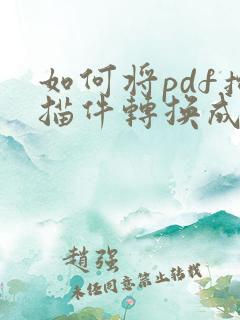 如何将pdf扫
描件轉换成
趙强
未经同意禁止转载